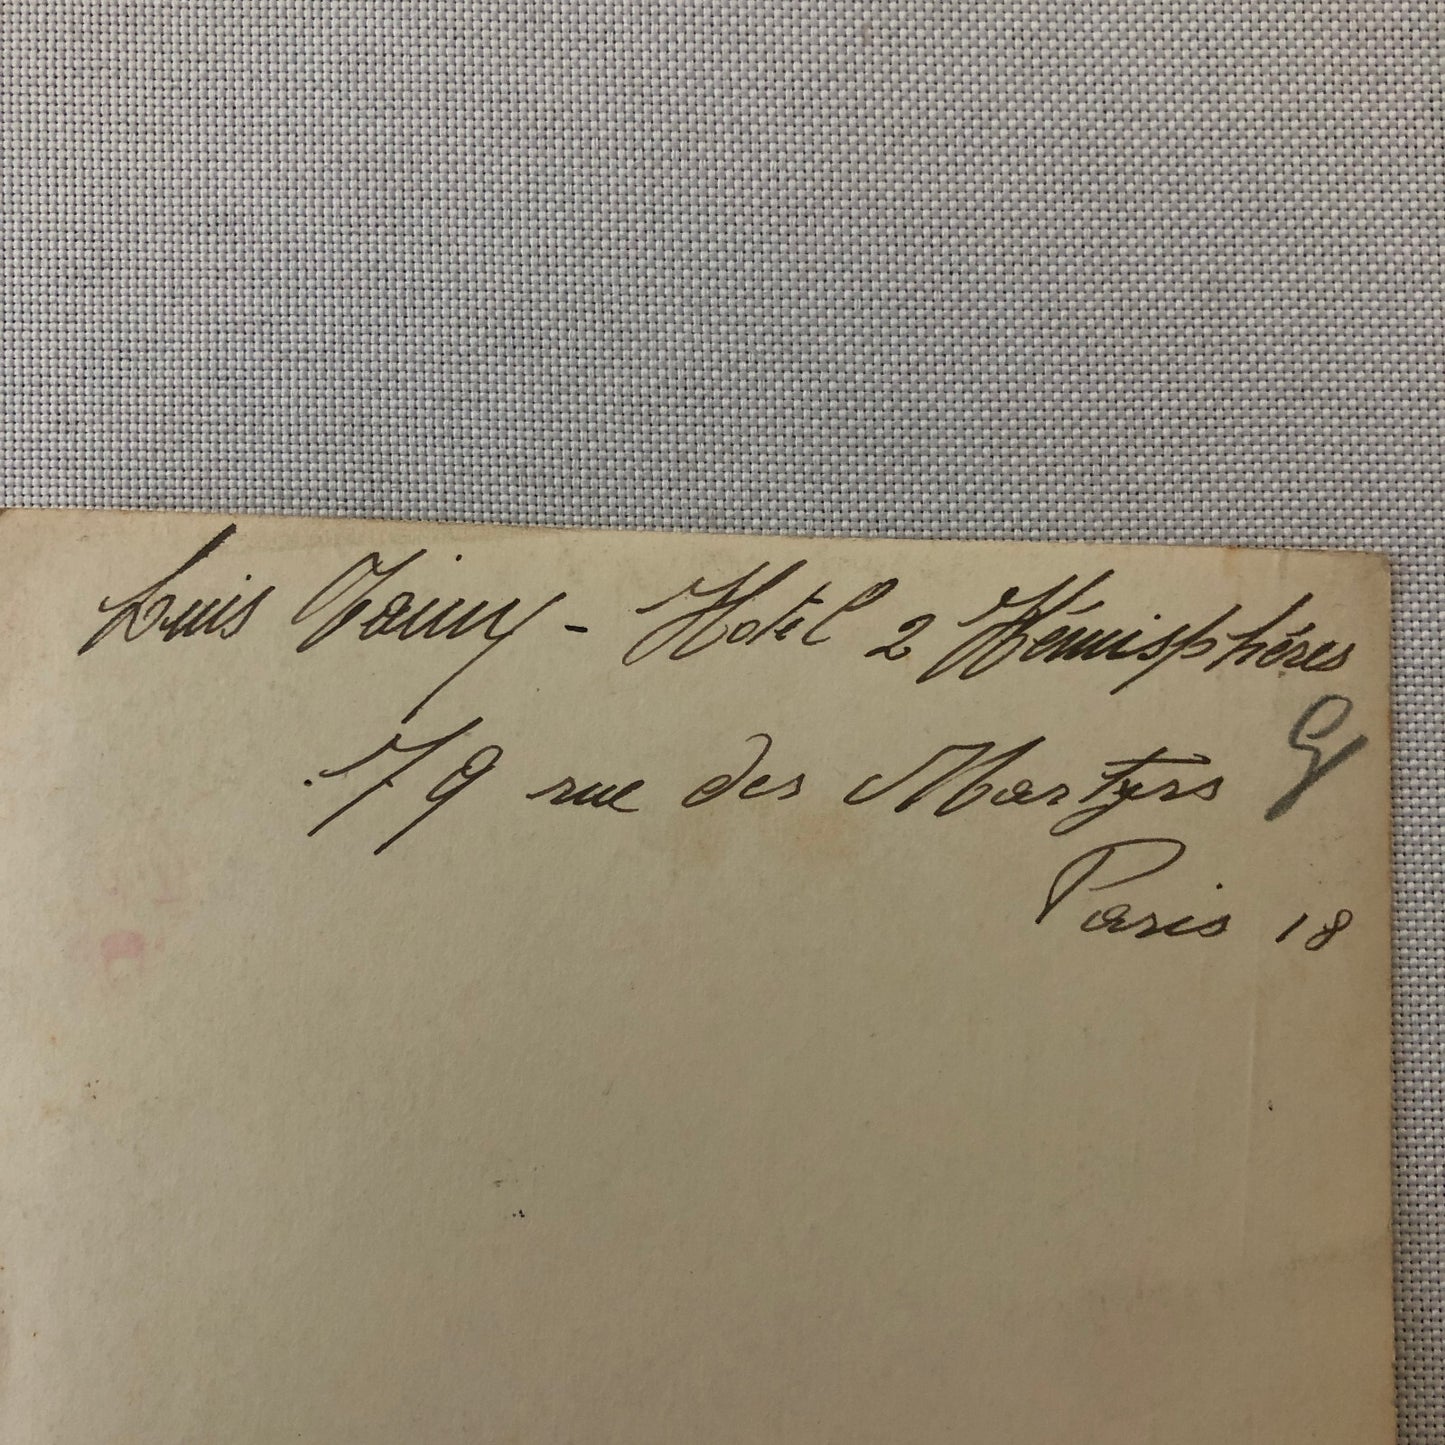 Luis - Hotel 2 Hémisphères
79 rue des Martyrs
Paris 18